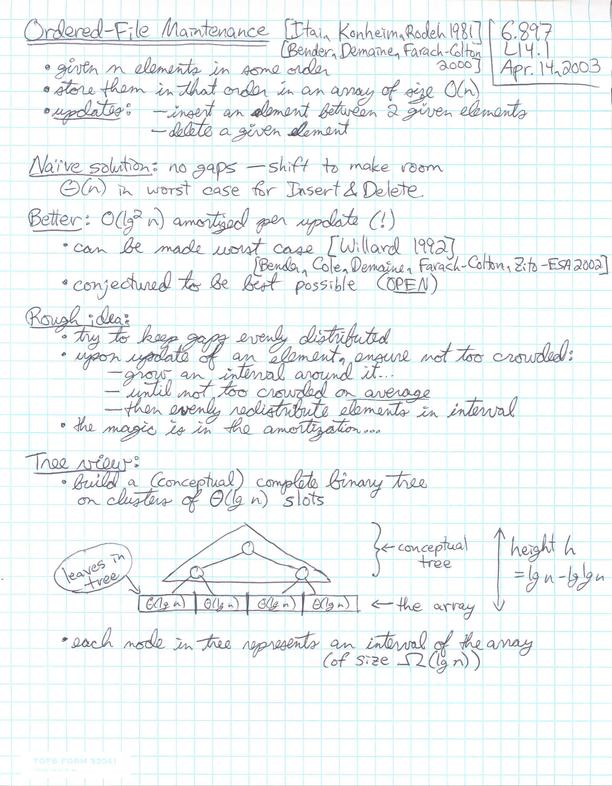 Ordered-File Maintenance [Itai, Konheim, Rodeh 1981]
[Bender, Demaine, Farach-Colton 2000]
6.897
L14.1
Apr. 14, 2003
• given n elements in some order
• store them in that order in an array of size O(n)
• updates: — insert an element between 2 given elements
— delete a given element
Naïve solution: no gaps — shift to make room
Θ(n) in worst case for Insert & Delete
Better: O(lg² n) amortized per update (!)
• can be made worst case [Willard 1992]
[Bender, Cole, Demaine, Farach-Colton, Zito - ESA 2002]
• conjectured to be best possible (OPEN)
Rough idea:
• try to keep gaps evenly distributed
• upon update of an element, ensure not too crowded:
— grow an interval around it...
— until not too crowded on average
— then evenly redistribute elements in interval
• the magic is in the amortization...
Tree view:
• build a (conceptual) complete binary tree
on clusters of Θ(lg n) slots
leaves in tree
← conceptual tree
height h
= lg n - lg lg n
Θ(lg n) Θ(lg n) Θ(lg n) Θ(lg n) ← the array
• each node in tree represents an interval of the array
(of size Ω(lg n))